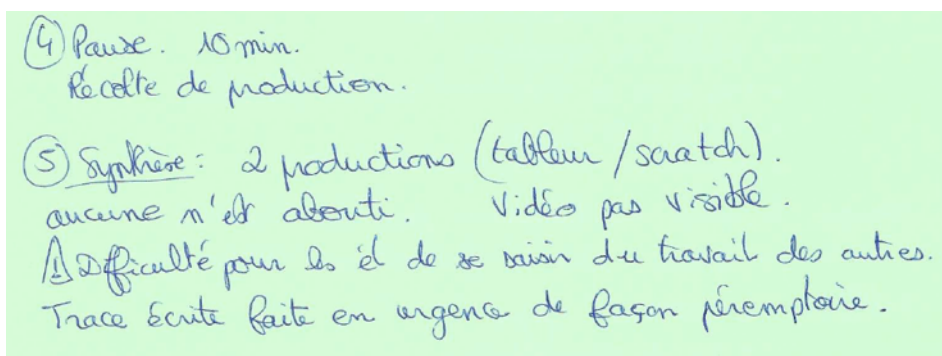 ④ Pause. 10 min.
Récolte de production.
⑤ Synthèse : 2 productions (tableur / scratch).
aucune n'est abouti. Vidéo pas visible.
⚠ Difficulté pour les él de se saisir du travail des autres.
Trace écrite faite en urgence de façon péremptoire.